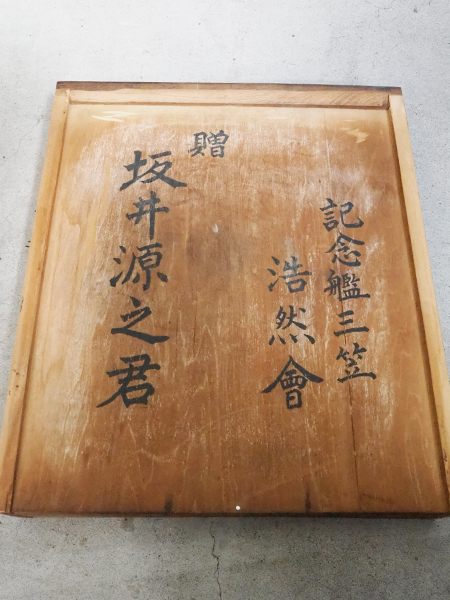 記念艦三笠
浩然會
贈
坂井源之君